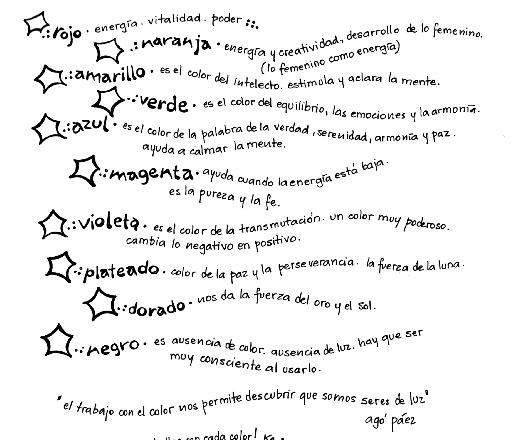 .:rojo · energía. vitalidad. poder :::.
.:naranja · energía y creatividad, desarrollo de lo femenino.
(lo femenino como energía)
.:amarillo · es el color del intelecto. estimula y aclara la mente.
.:verde · es el color del equilibrio, las emociones y la armonía.
.:azul · es el color de la palabra de la verdad, serenidad, armonía y paz.
ayuda a calmar la mente.
.:magenta · ayuda cuando la energía está baja.
es la pureza y la fe.
.:violeta · es el color de la transmutación. un color muy poderoso.
cambia lo negativo en positivo.
.:plateado · color de la paz y la perseverancia. la fuerza de la luna.
.:dorado · nos da la fuerza del oro y el sol.
.:negro · es ausencia de color. ausencia de luz. hay que ser
muy consciente al usarlo.
"el trabajo con el color nos permite descubrir que somos seres de luz"
agó páez
con cada color!